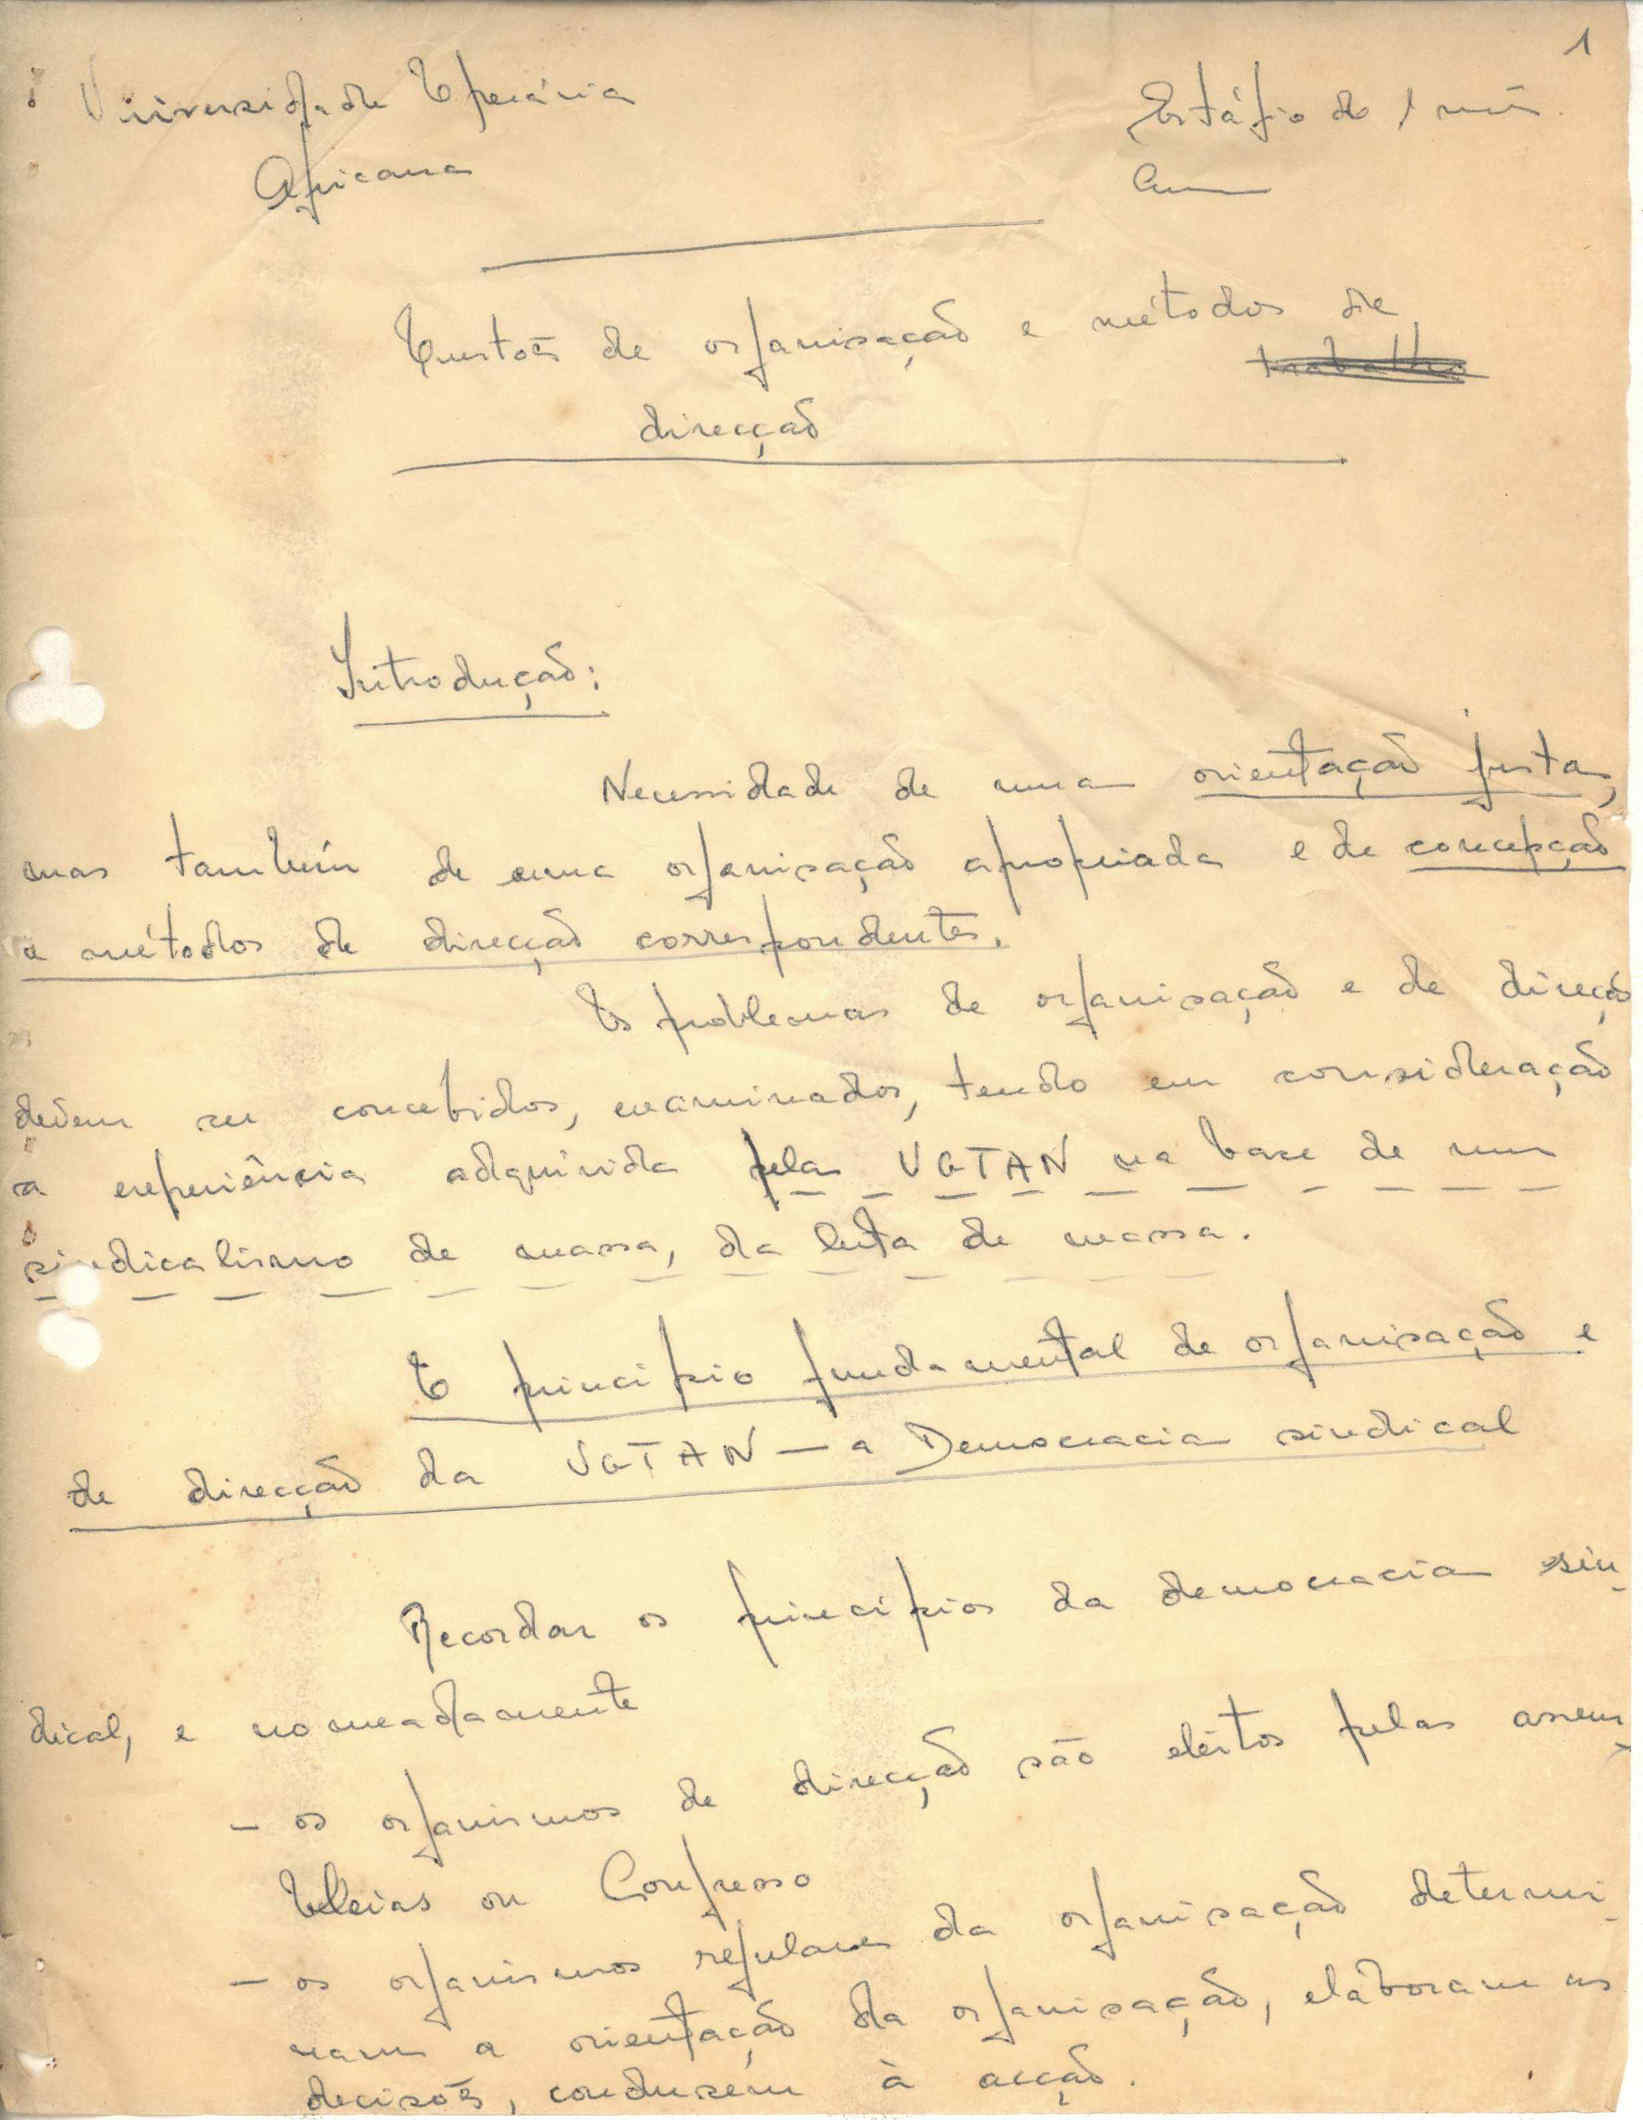 1
Universidade Operária
Africana
Estágio de 1 mês
Questões de organisação e métodos de
trabalho
direcção
Introdução:
Necessidade de uma orientação justa,
mas também de uma organisação apropriada e de concepção
e métodos de direcção correspondentes.
Os problemas de organisação e de direcção
devem ser concebidos, examinados, tendo em consideração
a experiência adquirida pela UGTAN na base de um
sindicalismo de massa, da luta de massa.
O princípio fundamental de organisação e
de direcção da UGTAN – a Democracia sindical
Recordar os princípios da democracia sin-
dical, e nomeadamente
– os organismos de direcção são eleitos pelas assem-
bleias ou Congresso
– os organismos regulares da organisação determi-
nam a orientação da organisação, elaboram as
decisões, conduzem à acção.